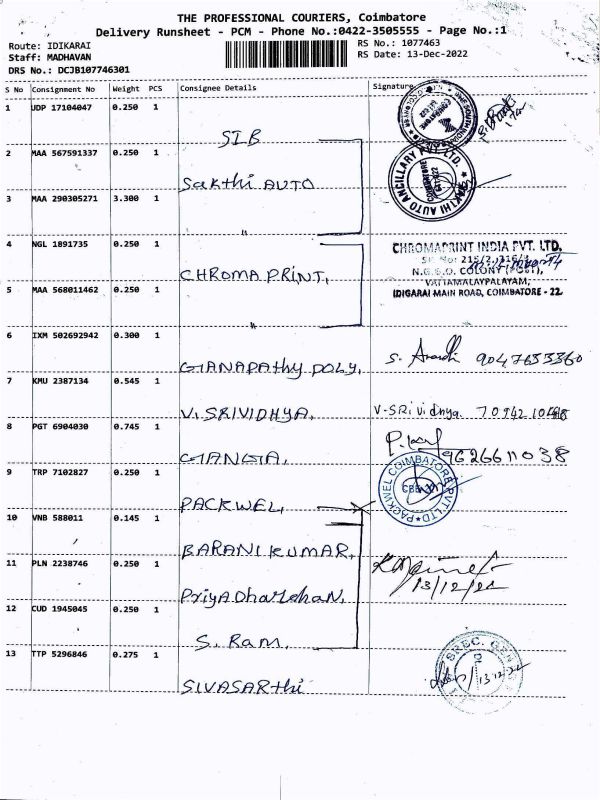 THE PROFESSIONAL COURIERS, Coimbatore
Delivery Runsheet - PCM - Phone No.:0422-3505555 - Page No.:1
Route: IDIKARAI
RS No.: 1077463
Staff: MADHAVAN
RS Date: 13-Dec-2022
DRS No.: DCJB107746301
S No Consignment No Weight PCS Consignee Details Signature
1 UDP 17104047 0.250 1
SIB
2 MAA 567591337 0.250 1
Sakthi AUTO
SAKTHI AUTO ANCILLARY PVT LTD.
COIMBATORE
3 MAA 290305271 3.300 1
"
4 NGL 1891735 0.250 1
CHROMA PRINT,
CHROMAPRINT INDIA PVT. LTD.
N.G.G.O. COLONY (POST),
VATTAMALAYPALAYAM,
IDIGARAI MAIN ROAD, COIMBATORE - 22.
5 MAA 568011462 0.250 1
"
6 IXM 502692942 0.300 1
GANAPAthy POLY,
7 KMU 2387134 0.545 1
V. SRIVIDHYA,
V-SRividhya.
8 PGT 6904030 0.745 1
GANGA,
9626611038
9 TRP 7102827 0.250 1
PACKWEL,
PACKWEL COIMBATORE PVT LTD
10 VNB 588011 0.145 1
BARANIKUMAR,
11 PLN 2238746 0.250 1
PriyaDharshan,
13/12/22
12 CUD 1945045 0.250 1
S. Ram,
13 TTP 5296846 0.275 1
SIVASARthi